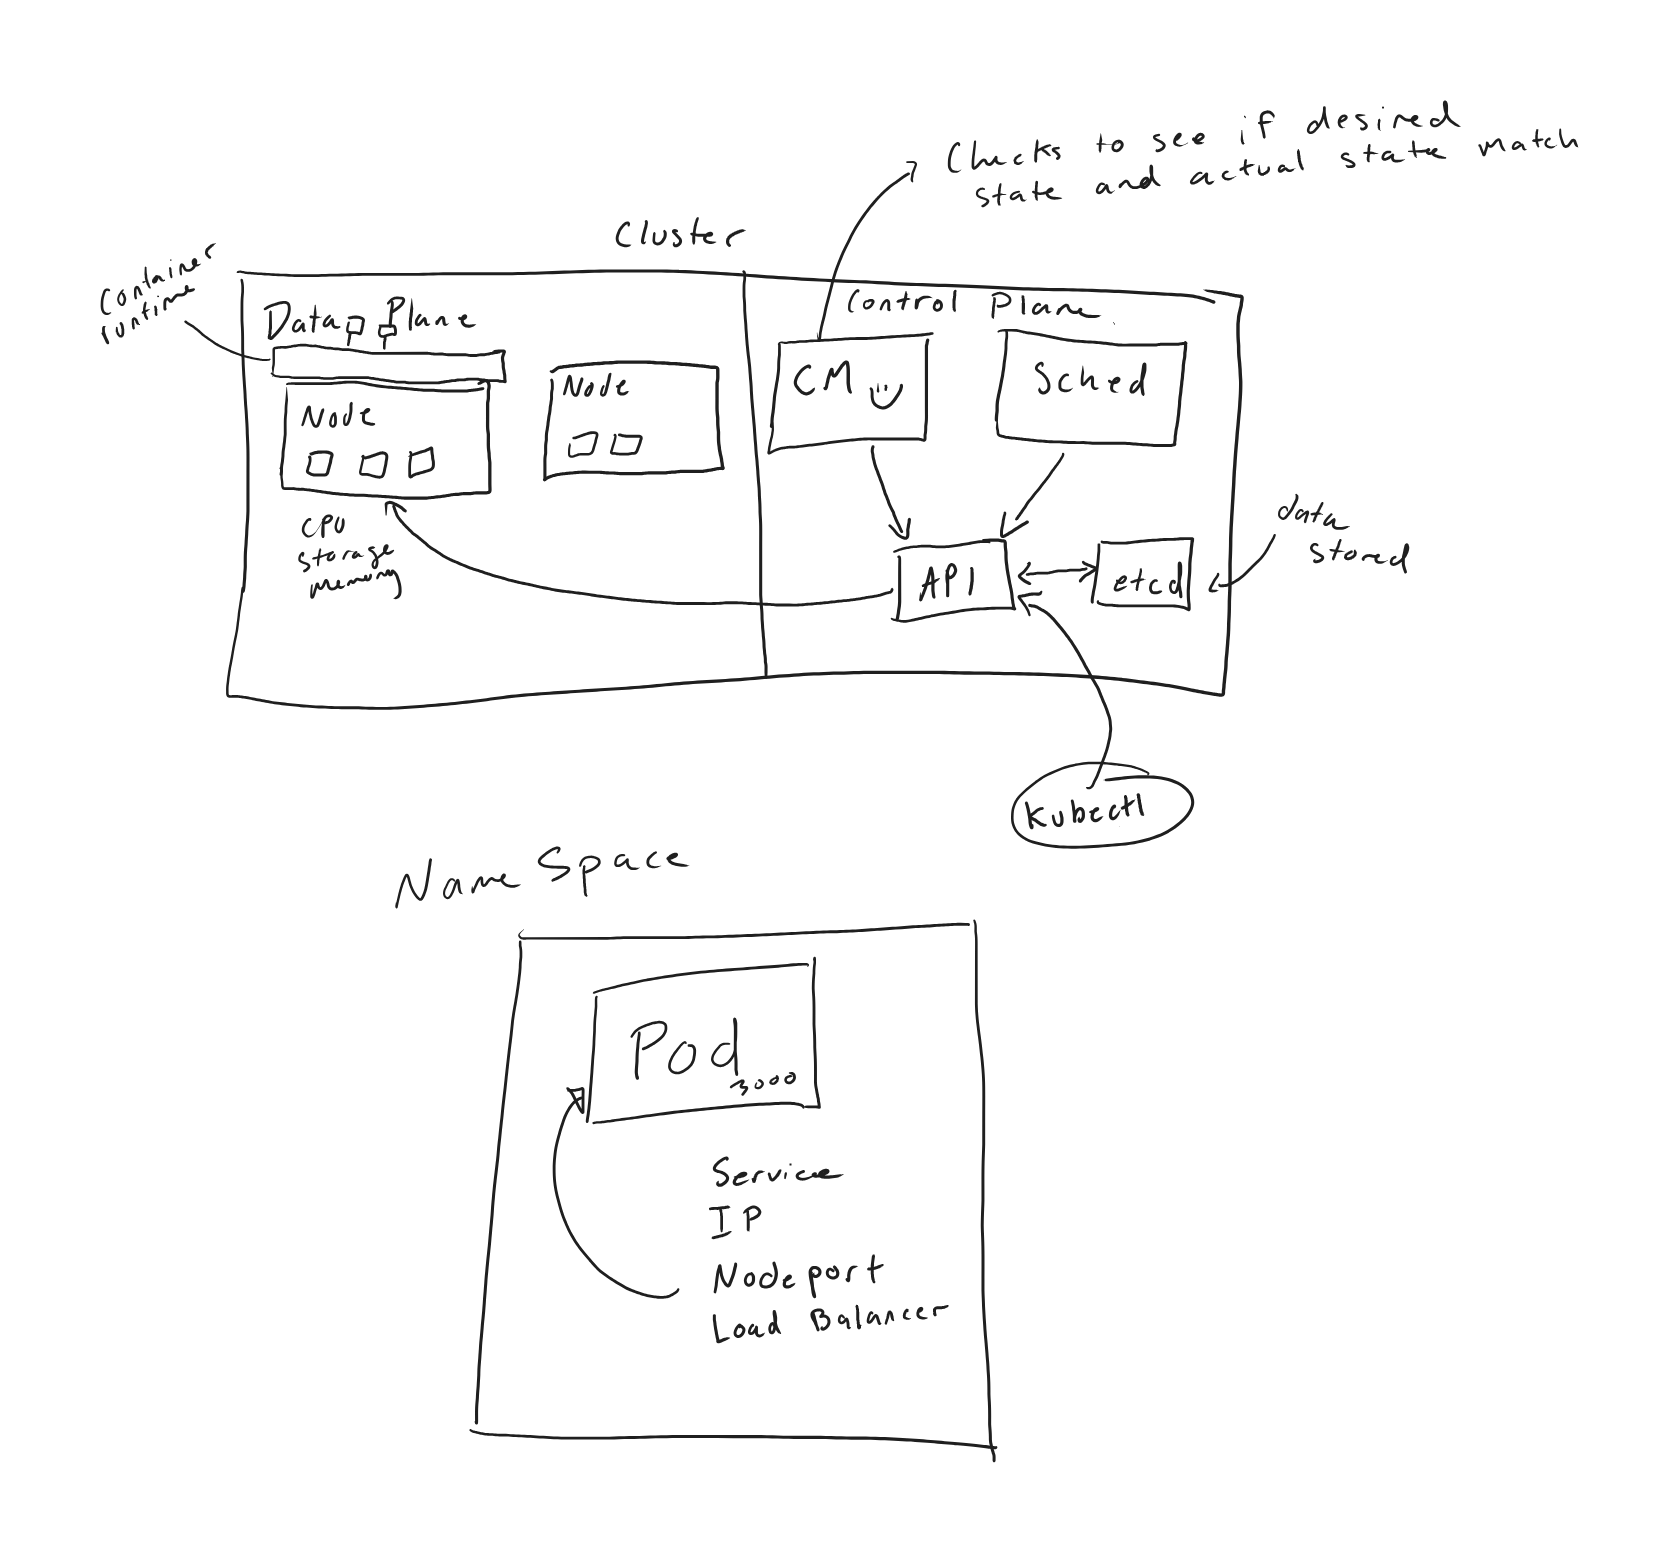 Checks to see if desired
state and actual state match
Cluster
Container
runtime
Data Plane
Control Plane
Node
Node
CM
Sched
CPU
storage
memory
API
etcd
data
stored
kubectl
Name Space
Pod
3000
Service
IP
Nodeport
Load Balancer